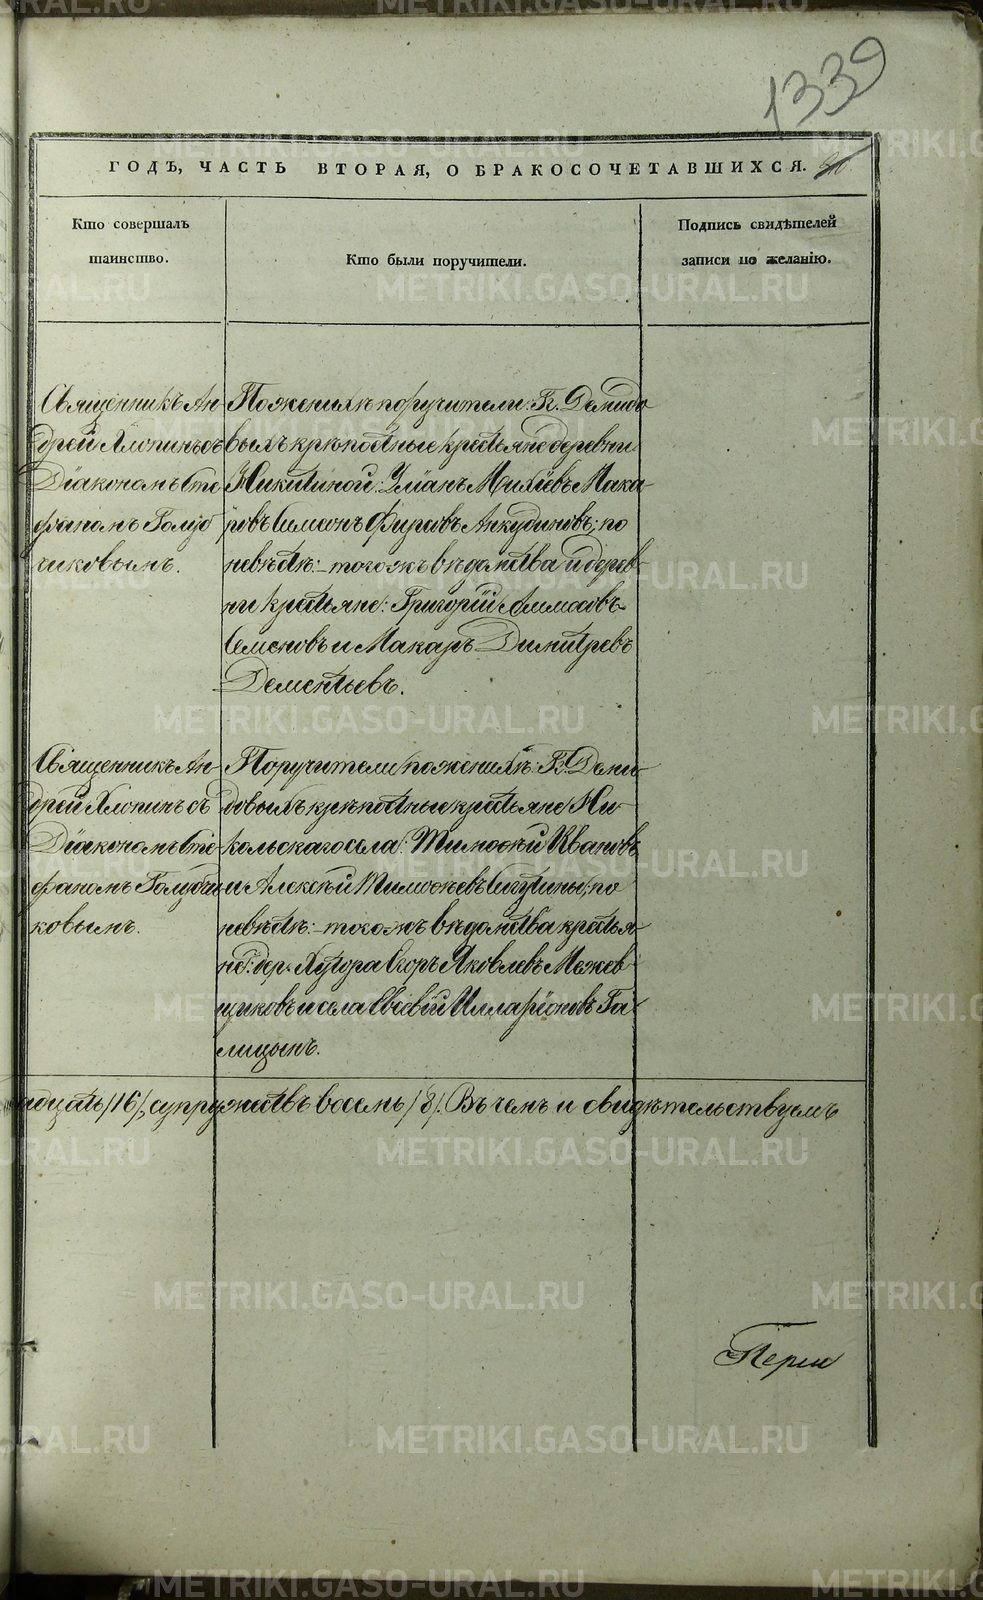 1339
ГОДЪ, ЧАСТЬ ВТОРАЯ, О БРАКОСОЧЕТАВШИХСЯ.
Кто совершалъ
таинство.
Кто были поручители.
Подпись свидѣтелей
записи по желанію.
Священникъ Ан-
дрей Хлопинъ съ
Діакономъ Сте
фаномъ Голуб
чиковымъ.
По женихѣ поручители: Г. Демидо
выхъ крѣпостные крестьяне деревни
Никитиной: Уліанъ Михѣевъ Мака-
ровъ Симеонъ Фирсовъ Анкудиновъ; по
невѣстѣ: того жъ вѣдомства и дерев
ни крестьяне: Григорій
Семеновъ и Макаръ Димитревъ
Дементьевъ.
Священникъ Ан-
дрей Хлопинъ съ
Діакономъ Сте
фаномъ Голубчи
ковымъ.
Поручители по женихѣ: Г. Деми-
довыхъ крѣпостные крестьяне Ни-
кольскаго села: Тимоѳей Ивановъ
и Алексѣй Тимоѳеевъ Сигутины; по
невѣстѣ: того жъ вѣдомства крестья-
не: дер. Хутора Егоръ Яковлевъ Межев
щиковъ и села Евсевій Илларіоновъ Га-
лицынъ.
надцать /16/, супружествъ восемь /8/. Въ чемъ и свидѣтельствуемъ
METRIKI.GASO-URAL.RU